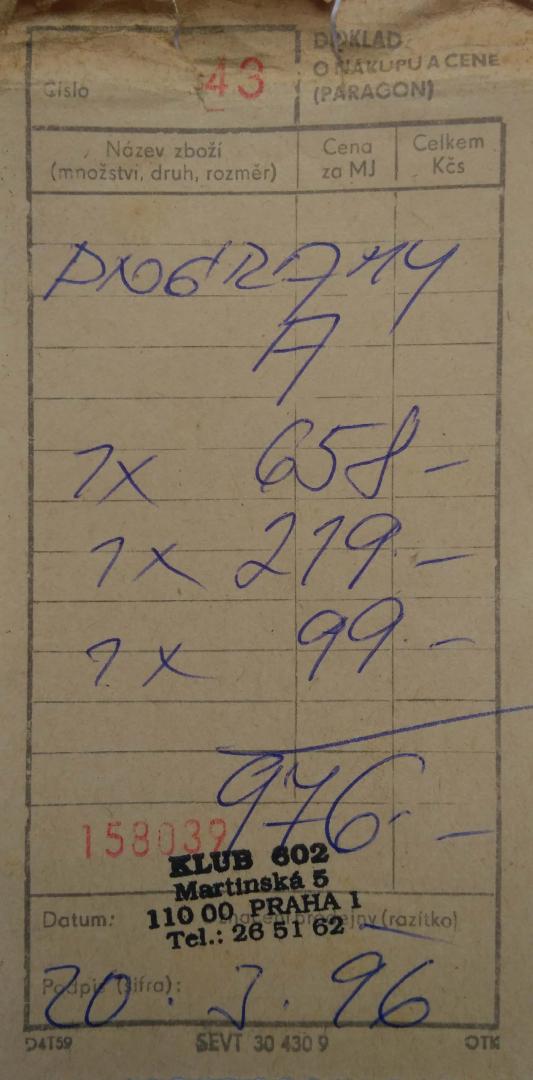 Číslo 43
DOKLAD
O NÁKUPU A CENE
(PARAGON)
Název zboží
(množství, druh, rozměr)
Cena
za MJ
Celkem
Kčs
A
1x 658 -
1x 219 -
1x 99 -
976 -
158039
KLUB 602
Martinská 5
110 00 PRAHA 1
Tel.: 26 51 62
Datum: prodejny (razítko)
Podpis (šifra):
20. 3. 96
D4T59 SEVT 30 430 9 OTK